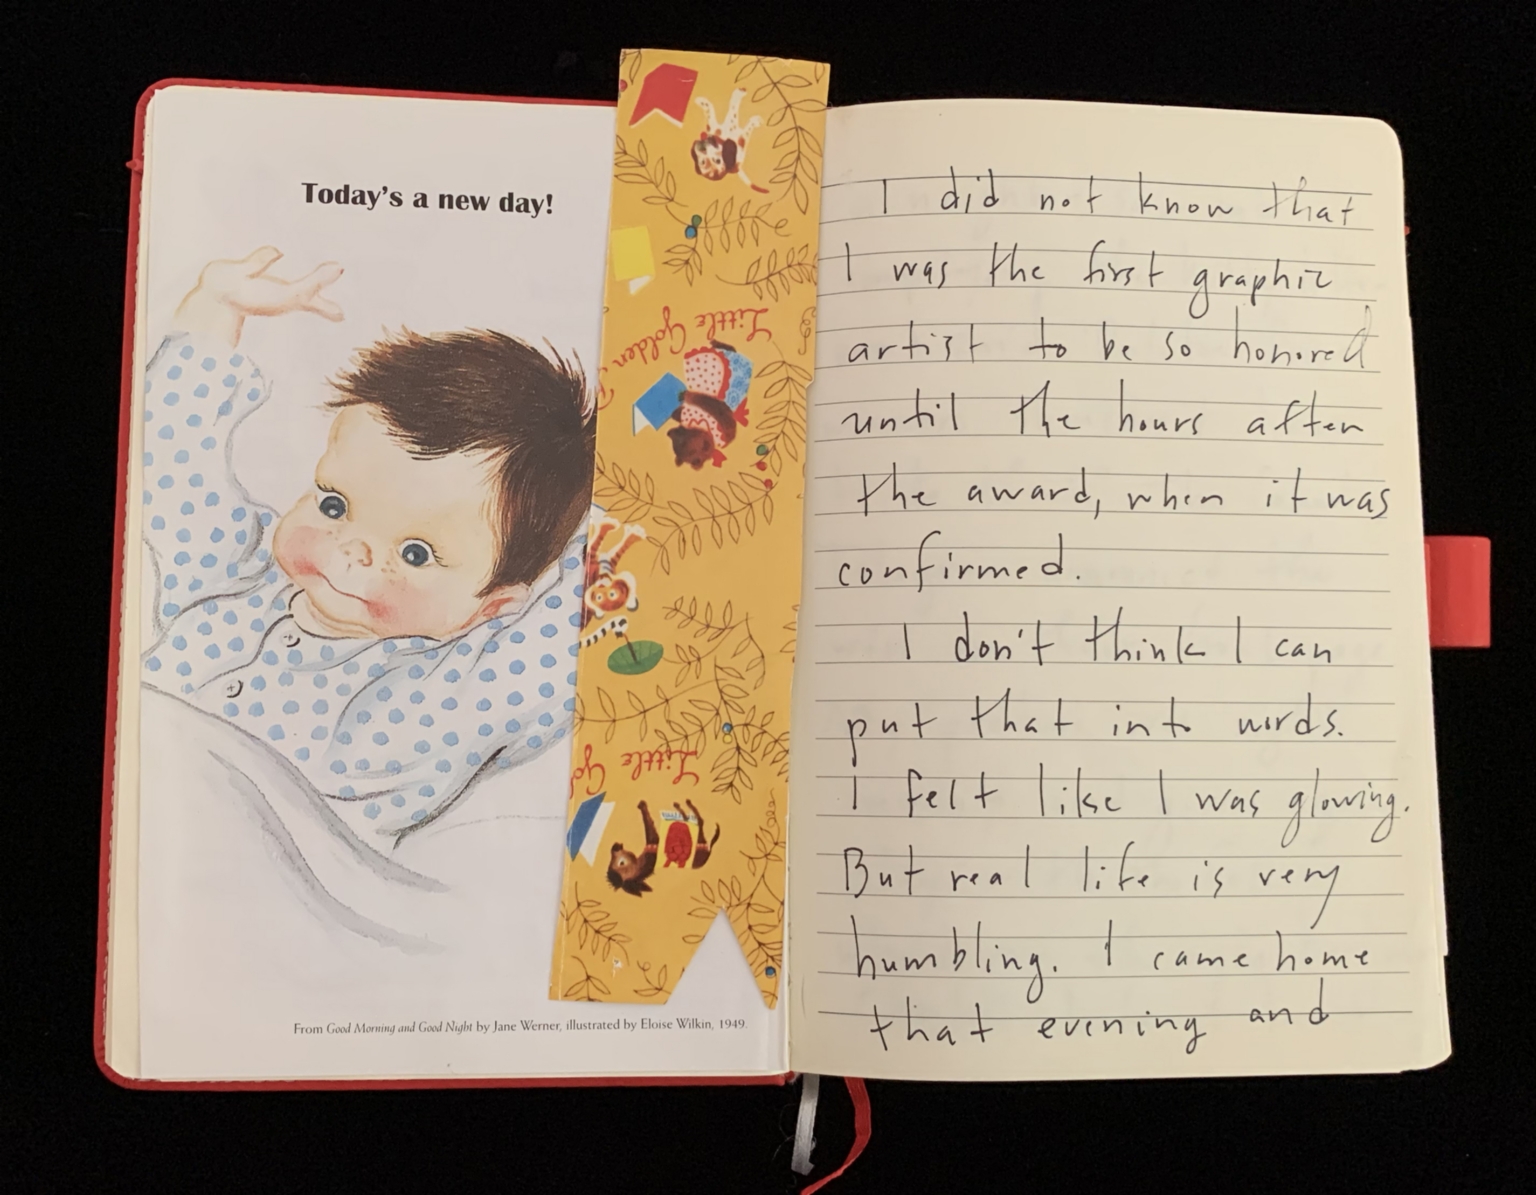 Today's a new day!
From Good Morning and Good Night by Jane Werner, illustrated by Eloise Wilkin, 1949.
Little Golden
Little Gol
I did not know that
I was the first graphic
artist to be so honored
until the hours after
the award, when it was
confirmed.
I don't think I can
put that into words.
I felt like I was glowing.
But real life is very
humbling. I came home
that evening and